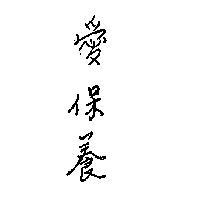 愛保養